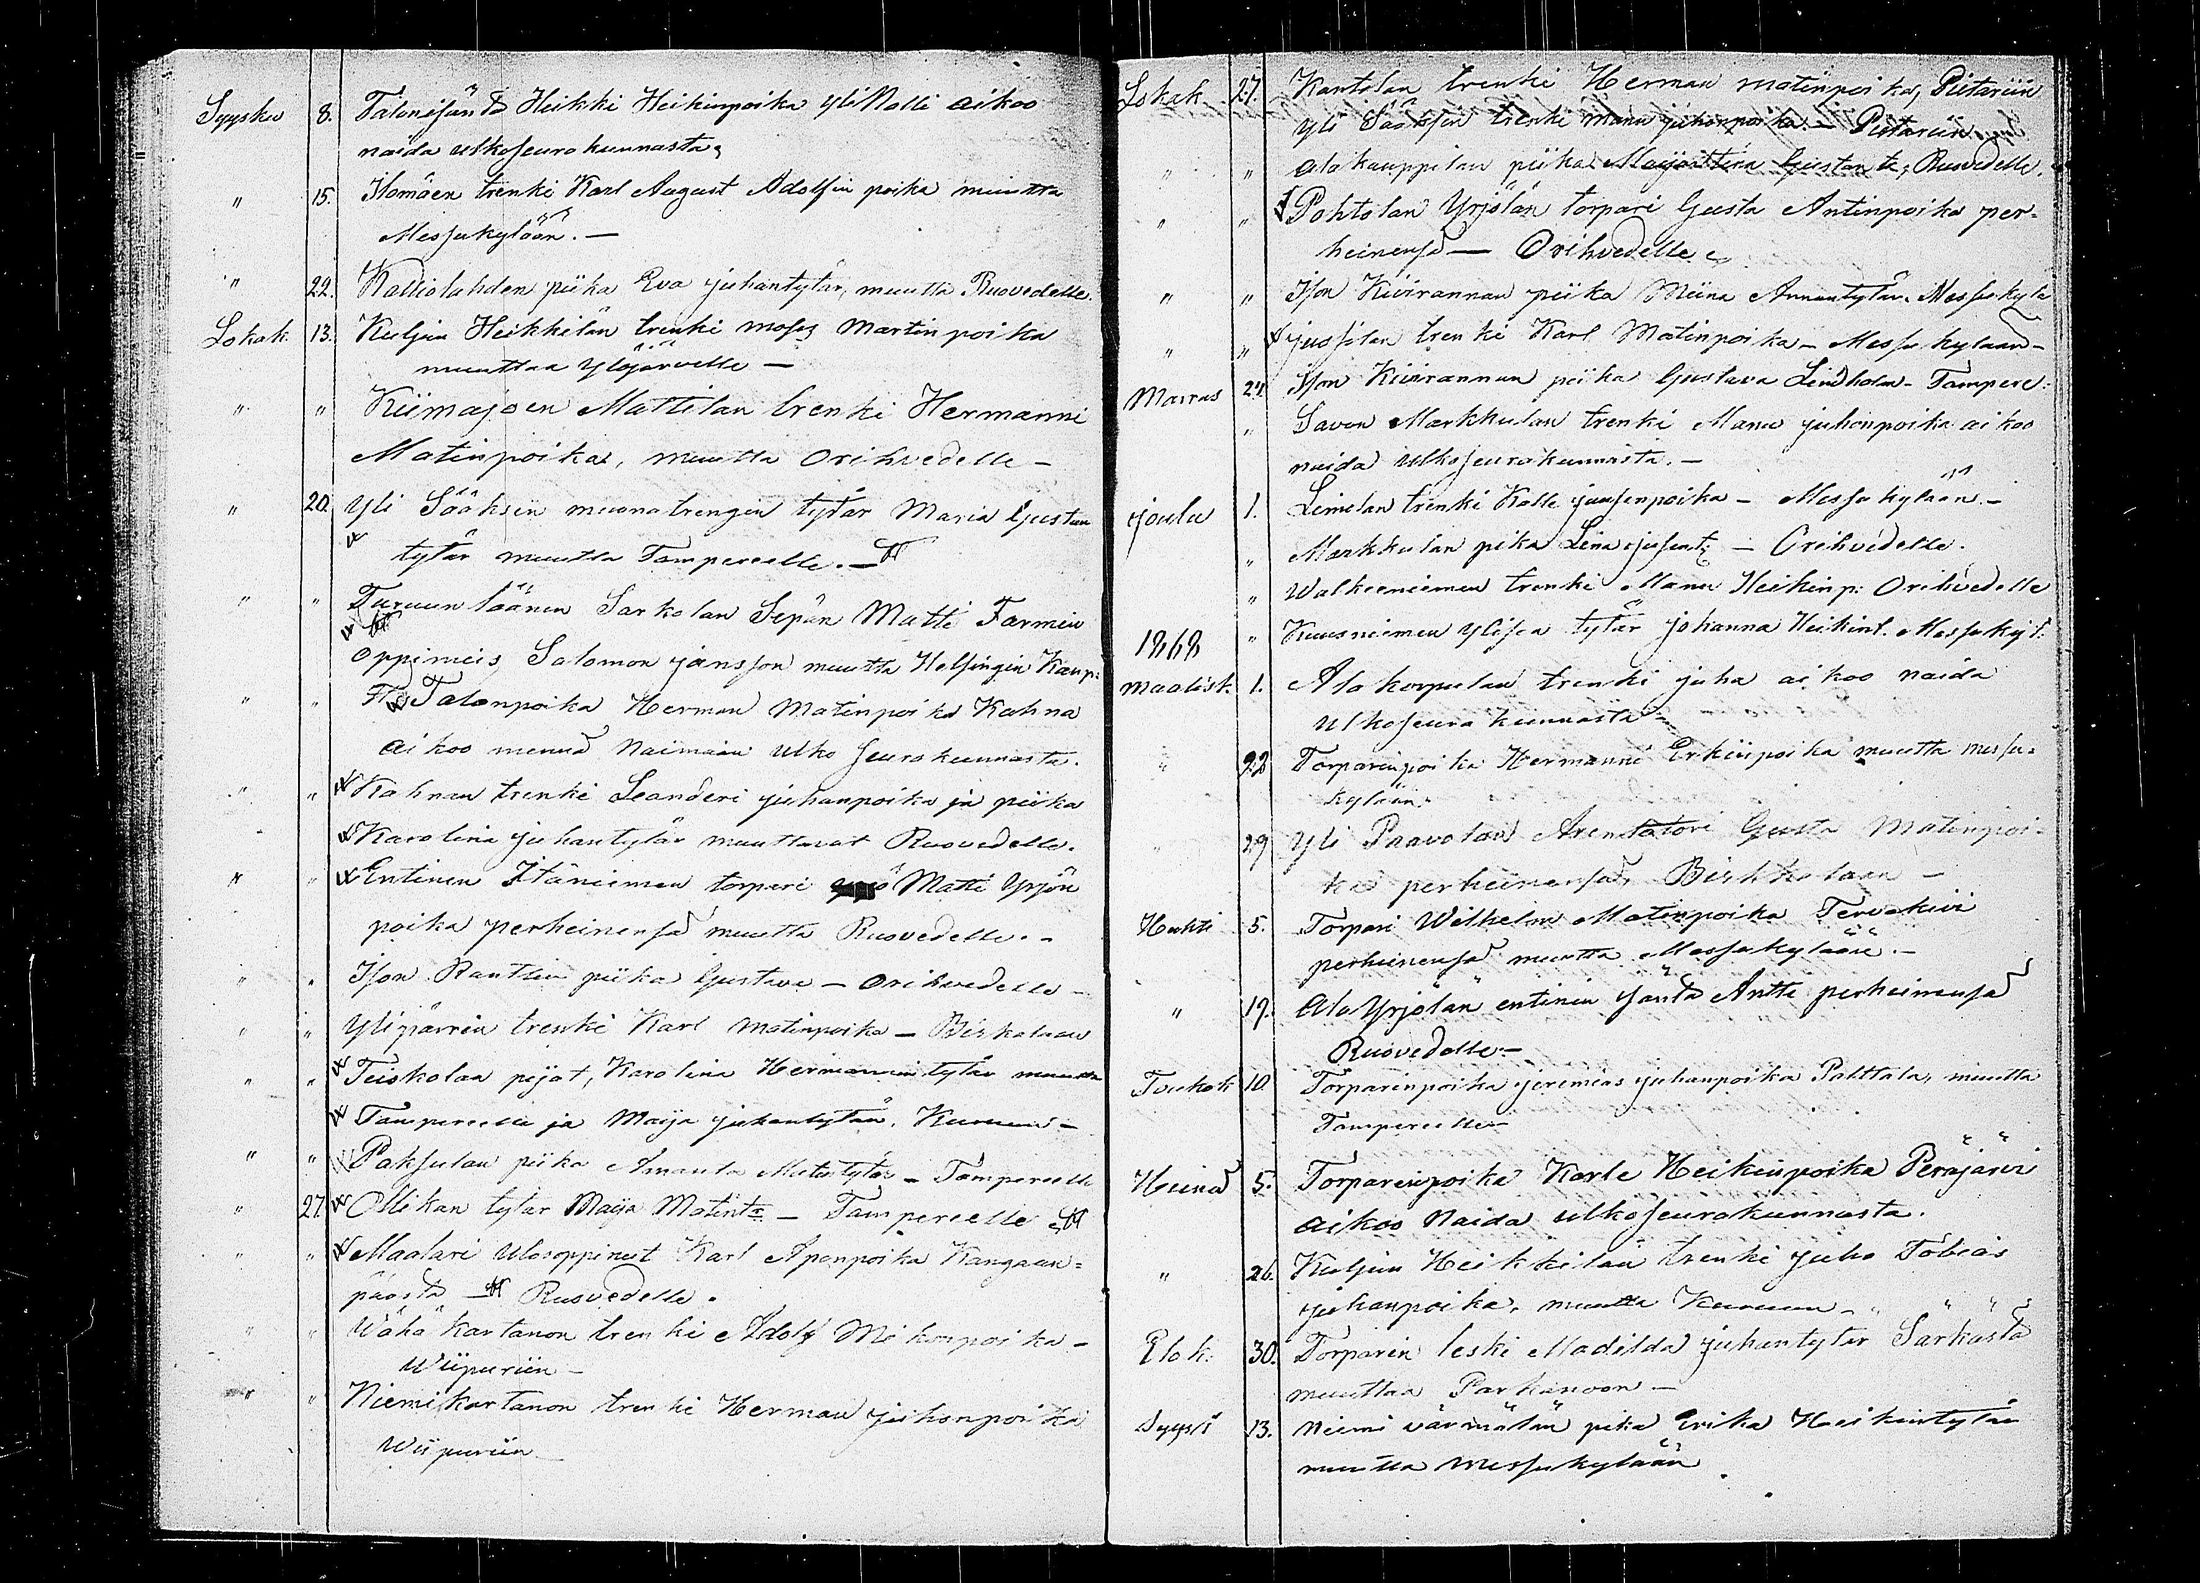 Syysku 8. Talonisändä Heikki Heikinpoika yli Nalli aikoo
naida ulkoseurakunnasta,
" 15. Ilomäen trenki Karl August Adolfin poika muutta
Messukylään. —
" 22. Kalliolahden piika Eva juhantytär, muutta Ruovedelle.
Lokak. 13. Kuljun Heikkilän trenki moses Martinpoika
muuttaa Ylöjärvelle —
" " Kiimajoen Mattilan trenki Hermanni
Matinpoika, muutta Orihvedelle —
" 20. Yli Sääksin muonatrengin tytär Maria Gustan
tytär muutta Tampereelle. —
" " Turuun läänin Sarkolan Sepän Matti Farmin
oppimeis, Salomon jansson muutta Helsingin Kaup:
" " Talonpoika Herman Matinpoika Kahna
aikoo mennä Naimaan ulko seurakunnasta.
" " Kahnan trenki Leanderi juhanpoika ja piika
Karolina juhantytär muuttavat Ruovedelle.
" " Entinen Itäniemen torpari Matti Yrjön
poika perheinensä muutta Ruovedelle. -
" " Ison Rantlin piika Gustava — Orihvedelle —
" " Ylipärrin trenki Karl Matinpoika — Birkalaan
" " Teiskolan pijat, Karolina Hermannintytär muutta
Tampereelle ja Maija juhantytär, Kuruun —
" " Paksulan piika Amanta Matintytär — Tampereelle
" 27. Ollikan tytär Maija Matintr — Tampereelle
" " Maalari Ulosoppinut Karl Apenpoika Kangaan=
päästä — Ruovedelle.
" " Wähä kartanon trenki Adolf Mikonpoika —
Wiipuriin —
" " Niemikartanon trenki Herman juhonpoika
Wiipuriin
Lokak. 27. Kantolan trenki Herman matinpoika, Pietariin
Yli Sääksin trenki Manu juhonpoika — Pietariin
" " Alakauppilan piika Maija Gustant:, Ruovedelle.
" " Pohtolan Yrjölän torpari Gusta Antinpoika per=
heinensä — Orihvedelle
" " Ison Kivirannan piika Miina Annantytär. Messukyla
" " jussilan trenki Karl Matinpoika — Messukylaan —
Marras 24. Ison Kivirannan piika Gustava Lindholm — Tampere:
" Savon Markkulan trenki Manu juhonpoika aikoo
naida ulkoseurakunnasta. —
joulu 1. Limelan trenki Kalle juusenpoika — Messukylään. —
" Markkulan pika Lena — Orihvedelle.
" Walkeeniemen trenki Manu Heikinp: Orihvedelle
" Kuusniemen ylisen tytär johanna Heikint. Messukyl:
1868
Maalisk. 1. Ala korpulan trenki juha aikoo naida
ulkoseurakunnasta —
" 22 Torparinpoika Hermanni Erkinpoika muutta messu=
kylään.
" 29 Yli Paavolan Arentatori Gusta Matinpoi=
ka perheinensä, Birkkalaan —
Huhti 5. Torpari Wilhelm Matinpoika Tervakivi
perheinensä muutta Messukylään. —
" 19. Ala Yrjölän entinen jsäntä Antti perheinensä
Ruovedelle —
Toukok 10. Torparinpoika jeremias juhanpoika Palttala, muutta
Tampereelle —
Heinä 5. Torparinpoika Karle Heikinpoika Peräjärvi
aikoo Naida ulkoseurakunnasta.
" 26. Kuljun Heikkilän trenki juho Tobias
juhanpoika, muutta Kuruun —
Elok. 30. Torparin leski Madilda juhantytär Särkästä
muuttaa Parkanoon —
Syysk 13. Niemi värmälän pika Erika Heikintytär
muutta messukylään